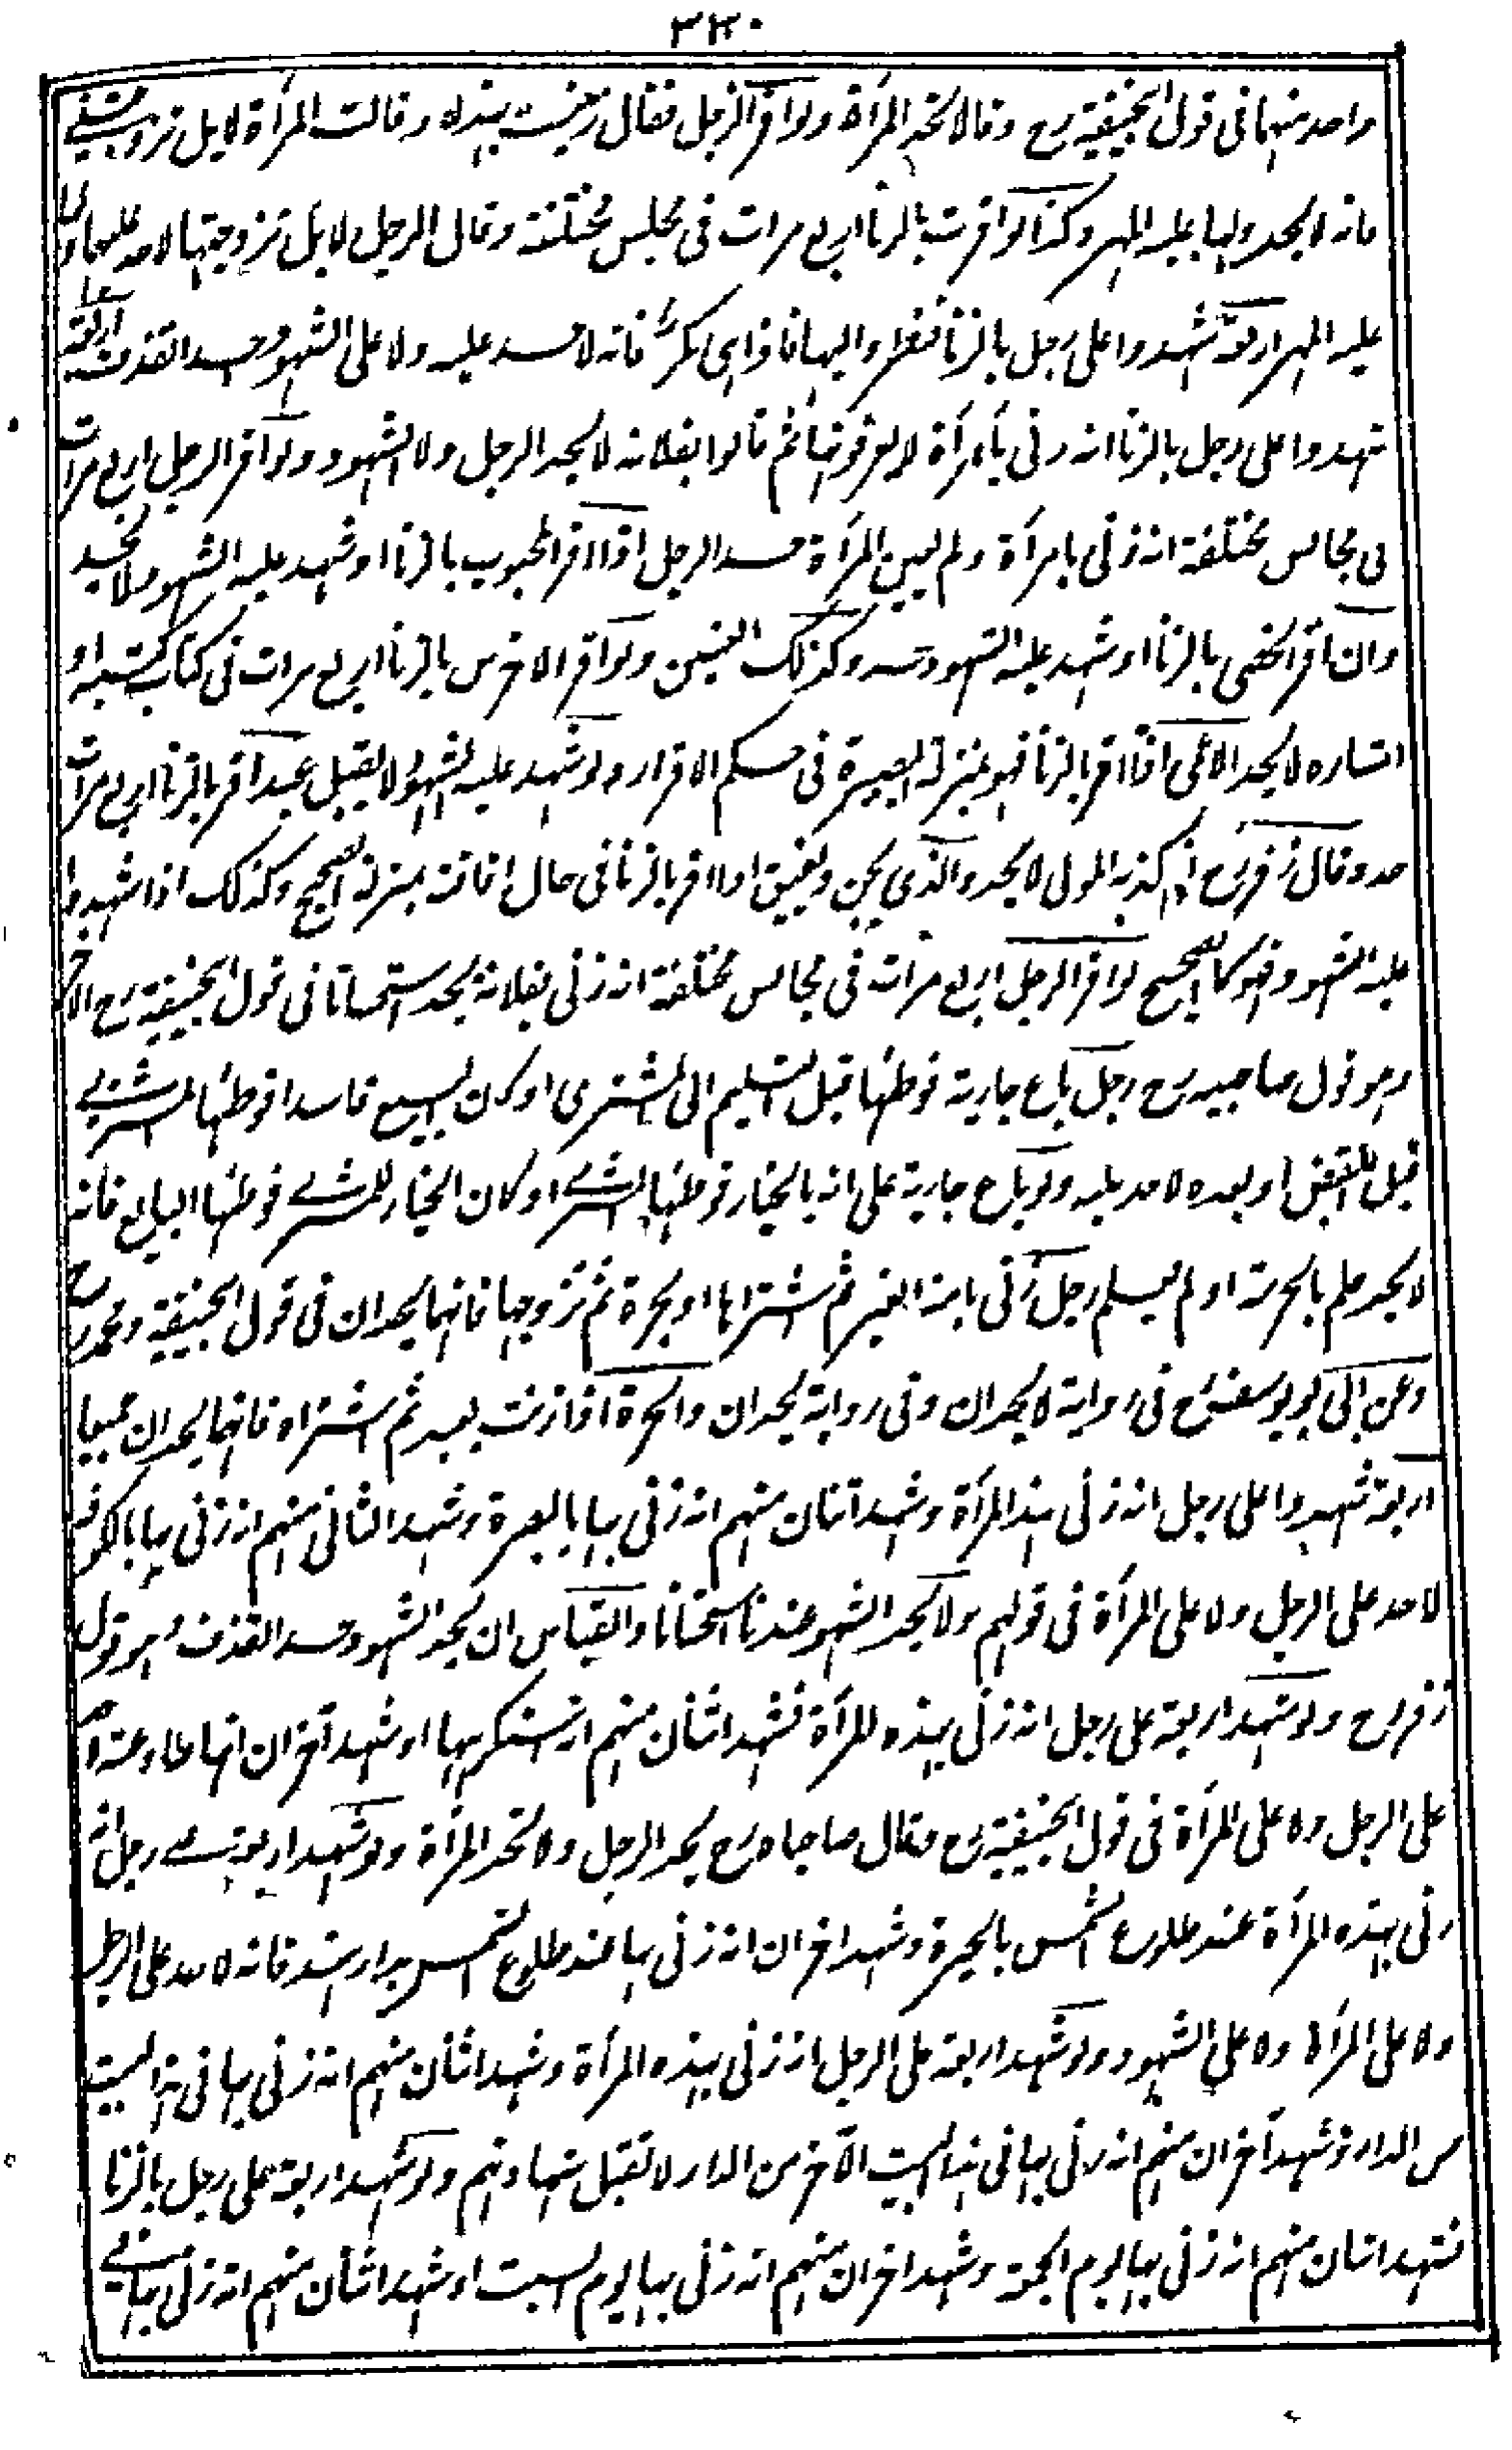 ٣٣٠
واحد منهما فى قول ابيحنيفة رح وقالا تحد المرأة ولو اقر الرجل فقال زنيت بهذه وقالت المرأة لا بل تزوجنى
فانه لا يحد ولها عليه المهر وكذا لو اقرت بالزنا اربع مرات فى مجلس مختلفة وقال الرجل لا بل تزوجتها لاحد عليهما ولها
عليه المهر اربعة شهدوا على رجل بالزنا فنظروا اليها فاذا هى بكر فانه لا حد عليه ولا على الشهود حد القذف اربعة
شهدوا على رجل بالزنا انه زنى بامرأة لا يعرفونها ثم قالوا بفلانة لا يحد الرجل ولا الشهود ولو اقر الرجل اربع مرات
فى مجالس مختلفة انه زنى بامرأة ولم يبين المرأة حد الرجل اذا اقر المجبوب بالزنا او شهد عليه الشهود لا يحد
وان اقر الخصى بالزنا او شهد عليه الشهود حد وكذلك العنين ولو اقر الاخرس بالزنا اربع مرات فى كتاب كتبه او
اشاره لا يحد الاعمى اذا اقر بالزنا فهو بمنزلة البصير فى حكم الاقرار ولو شهد عليه الشهود لا يقبل عبد اقر بالزنا اربع مرات
حد وقال زفر رح ان كذبه المولى لا يحد والذى يجن ويفيق اذا اقر بالزنا فى حال افاقته بمنزلة الصحيح وكذلك اذا شهدوا
عليه الشهود فهو كالصحيح لو اقر الرجل اربع مرات فى مجالس مختلفة انه زنى بفلانة يحد استحسانا فى قول ابيحنيفة رح الاخر
وهو قول صاحبيه رح رجل باع جارية فوطئها قبل التسليم الى المشترى او كان البيع فاسدا فوطئها المشترى
قبل القبض او بعده لا حد عليه ولو باع جارية على انه بالخيار فوطئها المشترى او كان الخيار للمشترى فوطئها البايع فانه
لا يحد علم بالحرمة او لم يعلم رجل زنى بامة الغير ثم اشتراها او بحرة ثم تزوجها فانهما يحدان فى قول ابيحنيفة ومحمد رح
وعن ابى يوسف رح فى رواية لا يحدان وفى رواية يحدان والحرة اذا زنت بعبد ثم اشتراه فانهما يحدان جميعا
اربعة شهدوا على رجل انه زنى بهذه المرأة وشهد اثنان منهم انه زنى بها بالبصرة وشهد الثانى منهم انه زنى بها بالكوفة
لا حد على الرجل ولا على المرأة فى قولهم ولا يحد الشهود عندنا استحسانا والقياس ان يحد الشهود حد القذف وهو قول
زفر رح ولو شهد اربعة على رجل انه زنى بهذه المرأة فشهد اثنان منهم انه استكرهها او شهد آخران انها طاوعته لاحد
على الرجل ولا على المرأة فى قول ابيحنيفة رح وقال صاحباه رح يحد الرجل ولا تحد المرأة ولو شهد اربعة على رجل انه
زنى بهذه المرأة عند طلوع الشمس بالحيرة وشهد اخران انه زنى بها عند طلوع الشمس بدار هند فانه لا حد على الرجل
ولا على المرأة ولا على الشهود ولو شهد اربعة على الرجل انه زنى بهذه المرأة وشهد اثنان منهم انه زنى بها فى هذا البيت
من الدار وشهد آخران منهم انه زنى بها فى هذا البيت الآخر من الدار لا تقبل شهادتهم ولو شهد اربعة على رجل بالزنا
فشهد اثنان منهم انه زنى بها يوم الجمعة وشهد اخران منهم انه زنى بها يوم السبت او شهد اثنان منهم انه زنى بها فى